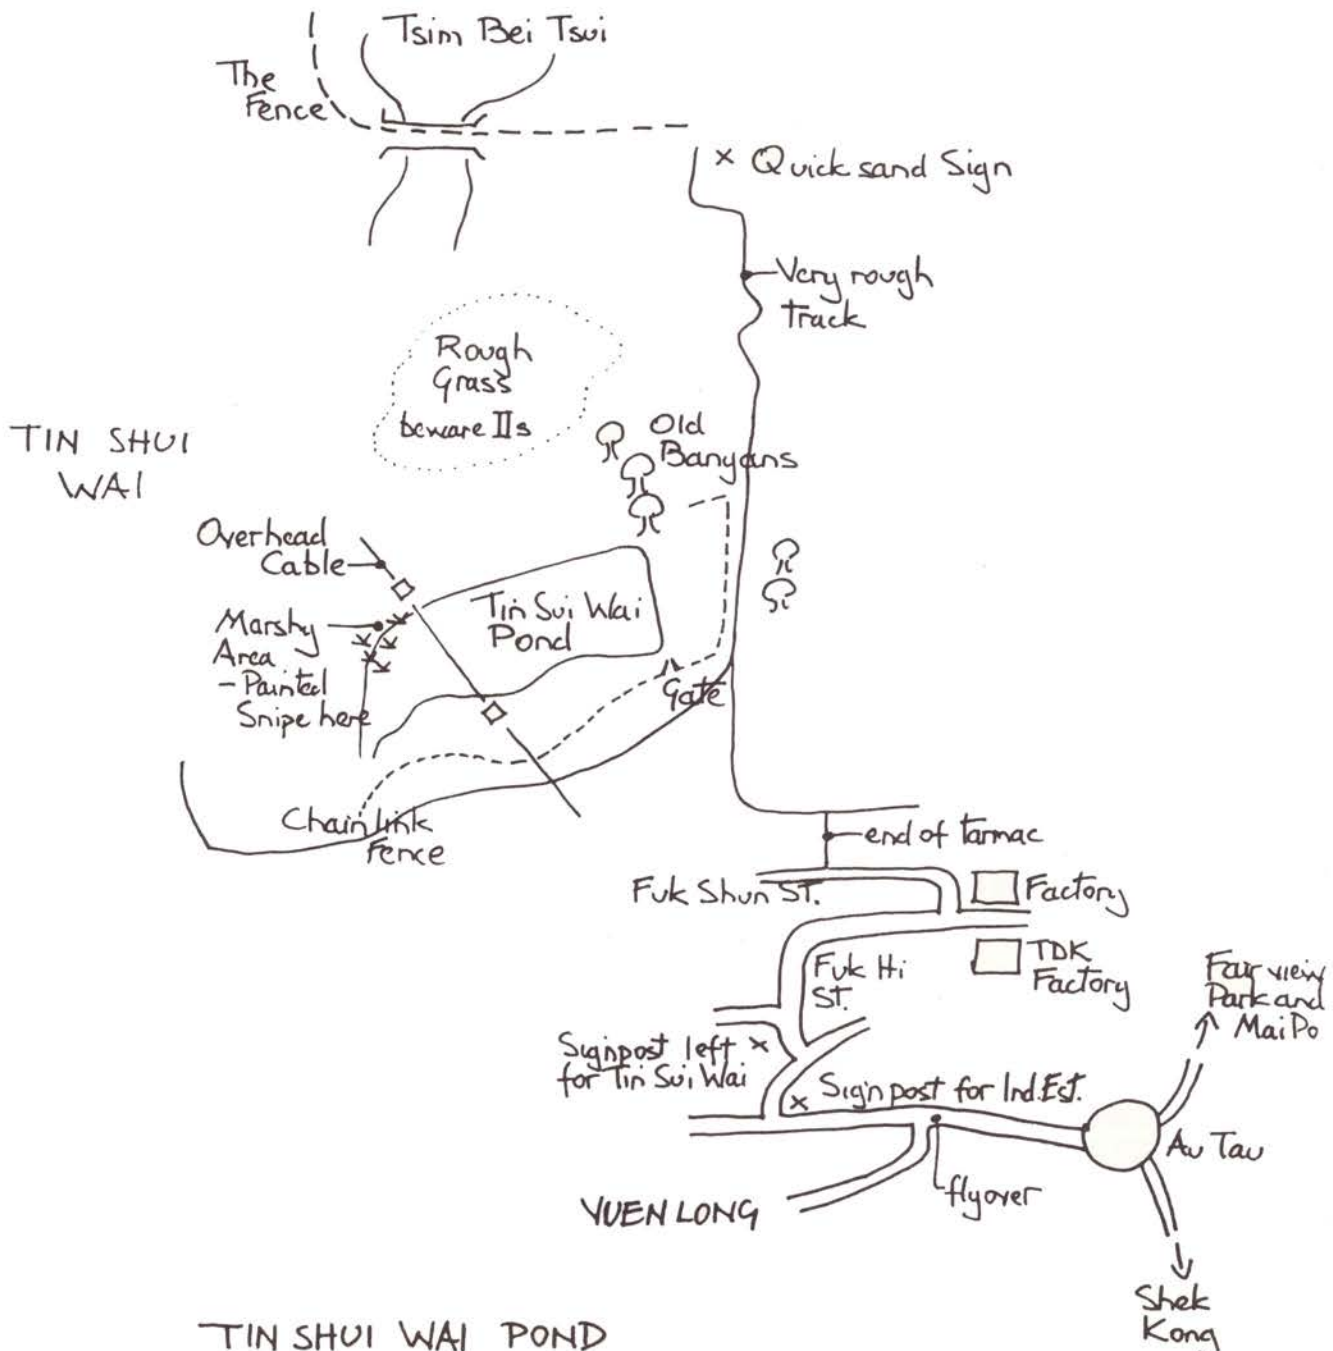 Tsim Bei Tsui
The
Fence
Quicksand Sign
Very rough
track
Rough
Grass
beware IIs
TIN SHUI
WAI
Old
Banyans
Overhead
Cable
Tin Sui Wai
Pond
Marshy
Area
- Painted
Snipe here
Gate
Chain link
Fence
end of tarmac
Fuk Shun ST.
Factory
TDK
Factory
Fuk Hi
ST.
Fairview
Park and
Mai Po
Signpost left
for Tin Sui Wai
Signpost for Ind.Est.
Au Tau
flyover
YUEN LONG
Shek
Kong
TIN SHUI WAI POND